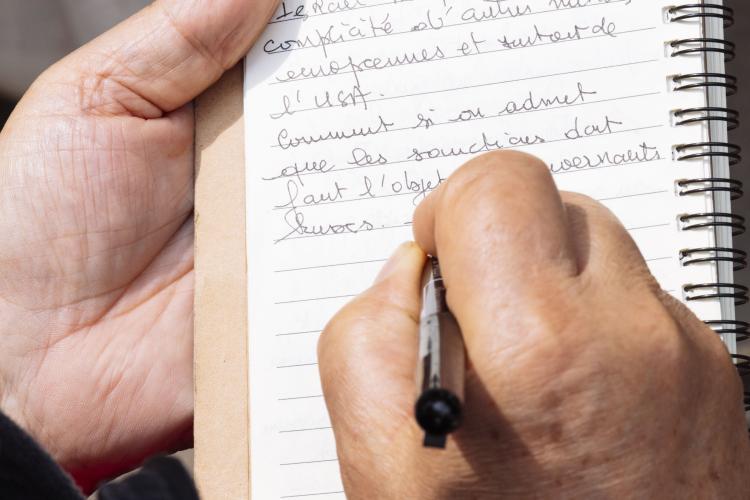 complicité d'autres nations,
européennes et surtout de
l'USA.
Comment si on admet
que les sanctions dont
faut l'objet uvernants
Russes.